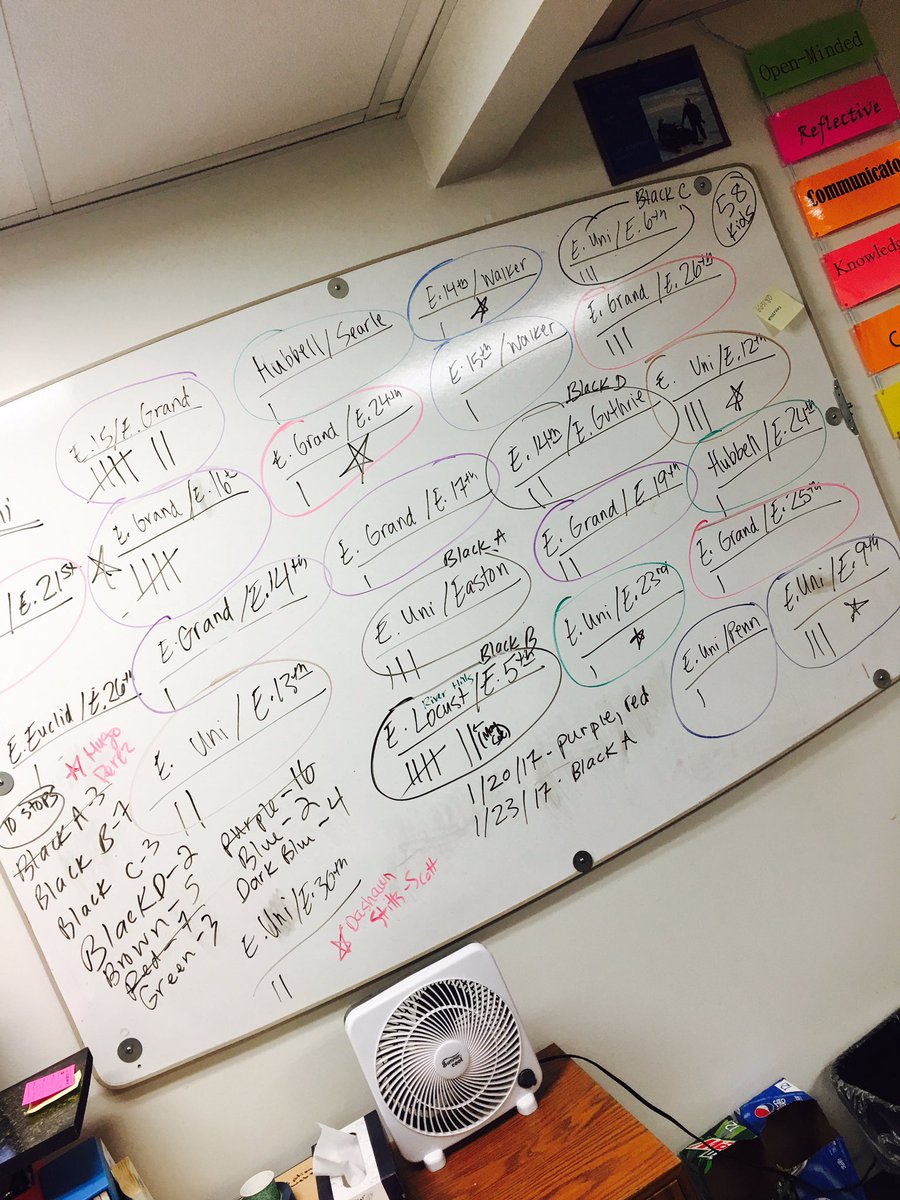 Open-Minded
Reflective
Communicato
Knowleds
C
58
Kids
Black C
E. Uni/E. 6th
III
E. 14th/Walker
I
E. Grand/E. 26th
III
Hubbell/Searle
I
E. 15th/Walker
I
E. Uni/E. 12th
III
E. 15/E. Grand
IIII II
E. Grand/E. 24th
I
Black D
E. 14th/E. Guthrie
II
Hubbell/E. 24th
I
E. Grand/E. 16th
IIII
E. Grand/E. 17th
I
E. Grand/E. 19th
II
E. Grand/E. 25th
I
/E. 21st
E. Grand/E. 14th
I
Black A
E. Uni/Easton
III
E. Uni/E. 23rd
I
E. Uni/Penn
I
E. Uni/E. 9th
III
E. Euclid/E. 26th
I
Hugo
Perez
E. Uni/E. 13th
II
Black B
River Hills
E. Locust/E. 5th
IIII II
1/20/17 - purple, red
1/23/17 - Black A
10 STOPS
Black A-3
Black B-7
Black C-3
Black D-2
Brown-5
Red-7
Green-3
Purple-16
Blue-2
Dark Blue-4
E. Uni/E. 30th
II
Dashawn
Stitts-Scott
cool